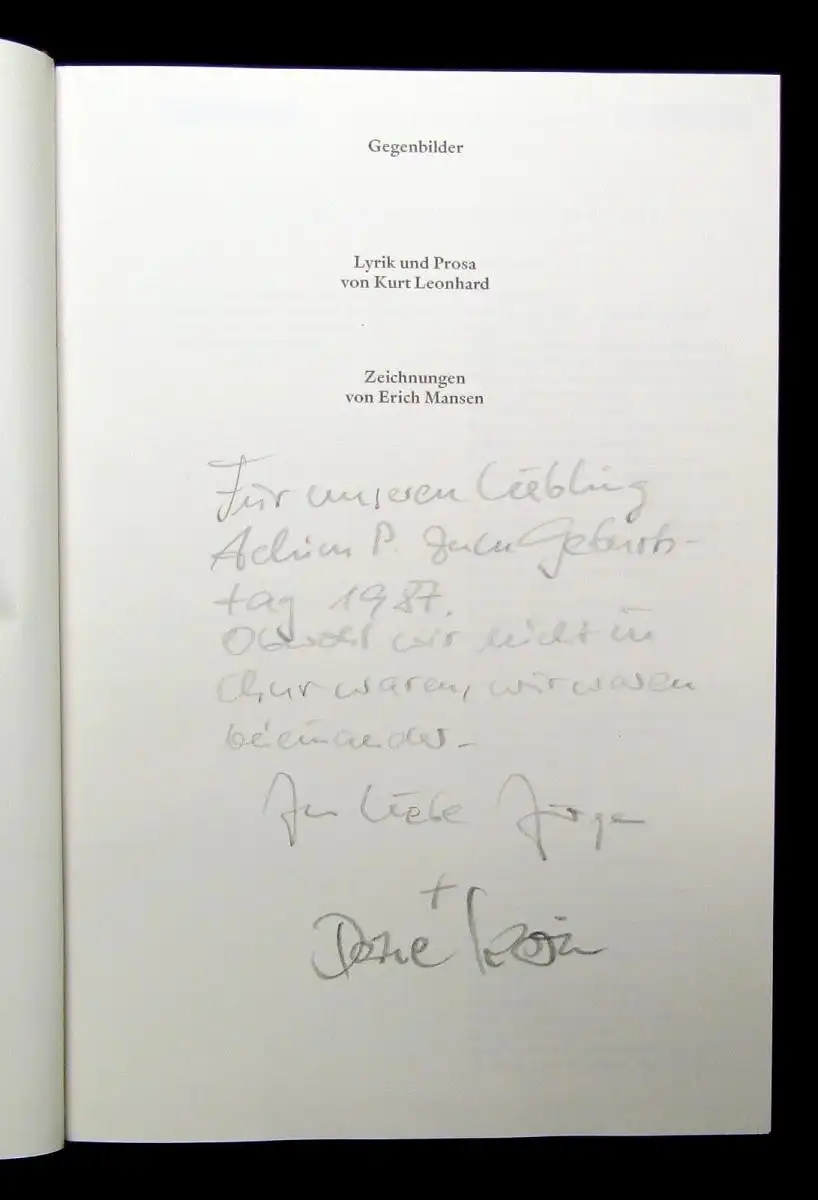 Gegenbilder
Lyrik und Prosa
von Kurt Leonhard
Zeichnungen
von Erich Mansen
Für unseren Liebling
Achim P. zum Geburts-
tag 1987.
Obwohl wir nicht in
Chur waren, wir waren
beieinander –
In Liebe Jürgen
+